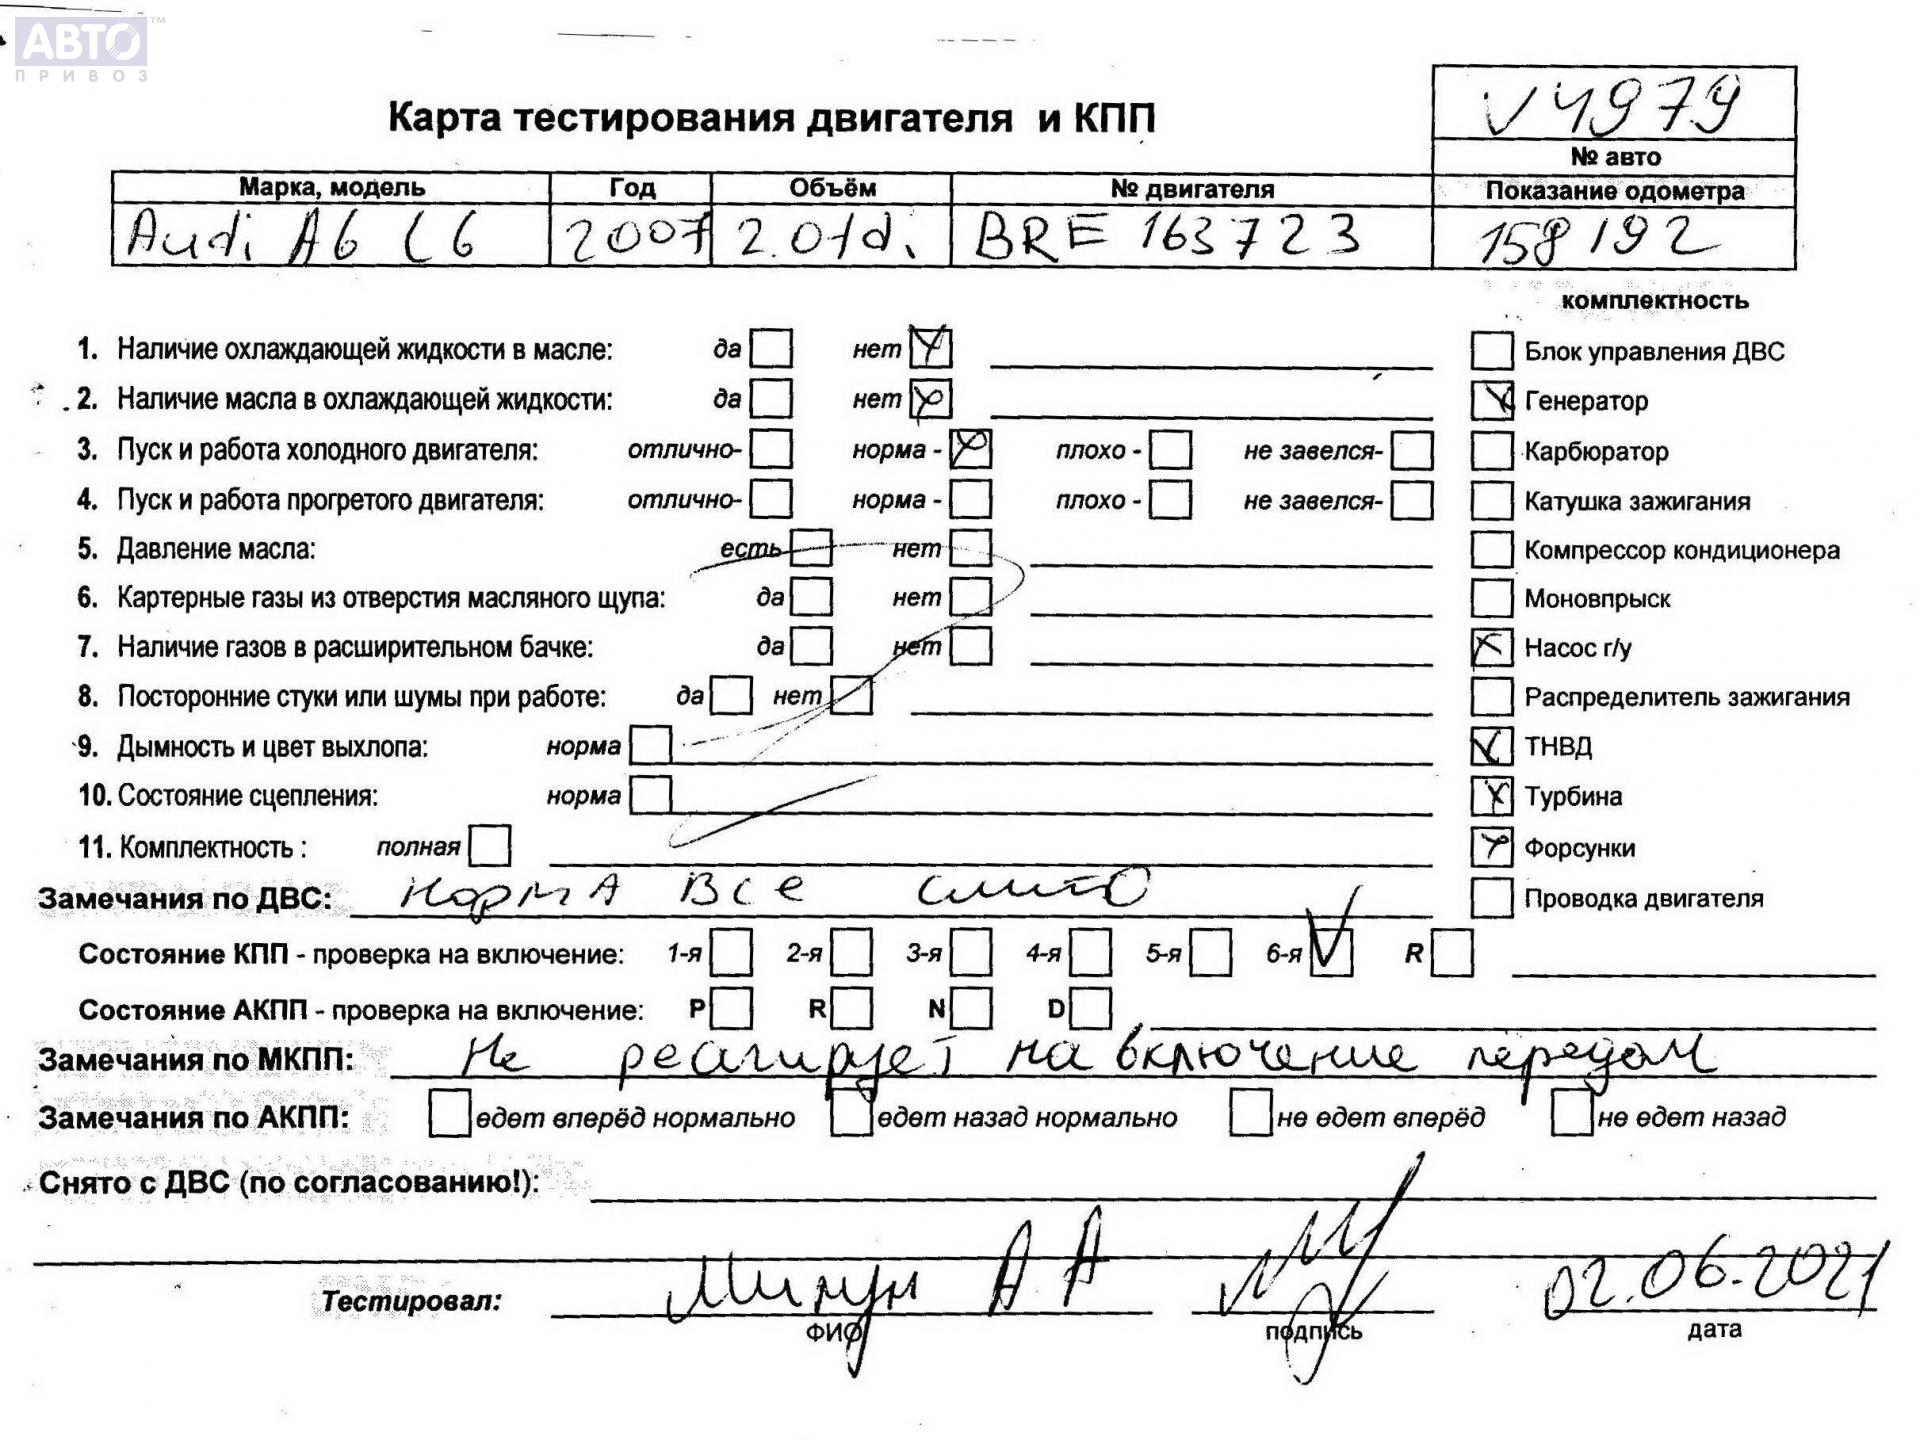 АВТО™
ПРИВОЗ
V4979
Карта тестирования двигателя и КПП
№ авто
Марка, модель Год Объём № двигателя Показание одометра
Audi A6 C6 2007 2.0td. BRE 163723 158192
комплектность
1. Наличие охлаждающей жидкости в масле: да нет Блок управления ДВС
2. Наличие масла в охлаждающей жидкости: да нет Генератор
3. Пуск и работа холодного двигателя: отлично- норма - плохо - не завелся- Карбюратор
4. Пуск и работа прогретого двигателя: отлично- норма - плохо - не завелся- Катушка зажигания
5. Давление масла: есть нет Компрессор кондиционера
6. Картерные газы из отверстия масляного щупа: да нет Моновпрыск
7. Наличие газов в расширительном бачке: да нет Насос г/у
8. Посторонние стуки или шумы при работе: да нет Распределитель зажигания
9. Дымность и цвет выхлопа: норма ТНВД
10. Состояние сцепления: норма Турбина
11. Комплектность : полная Форсунки
Замечания по ДВС: норма все слито Проводка двигателя
Состояние КПП - проверка на включение: 1-я 2-я 3-я 4-я 5-я 6-я R
Состояние АКПП - проверка на включение: P R N D
Замечания по МКПП: Не реагирует на включение передач
Замечания по АКПП: едет вперёд нормально едет назад нормально не едет вперёд не едет назад
Снято с ДВС (по согласованию!):
Тестировал: А А 02.06.2021
ФИО подпись дата